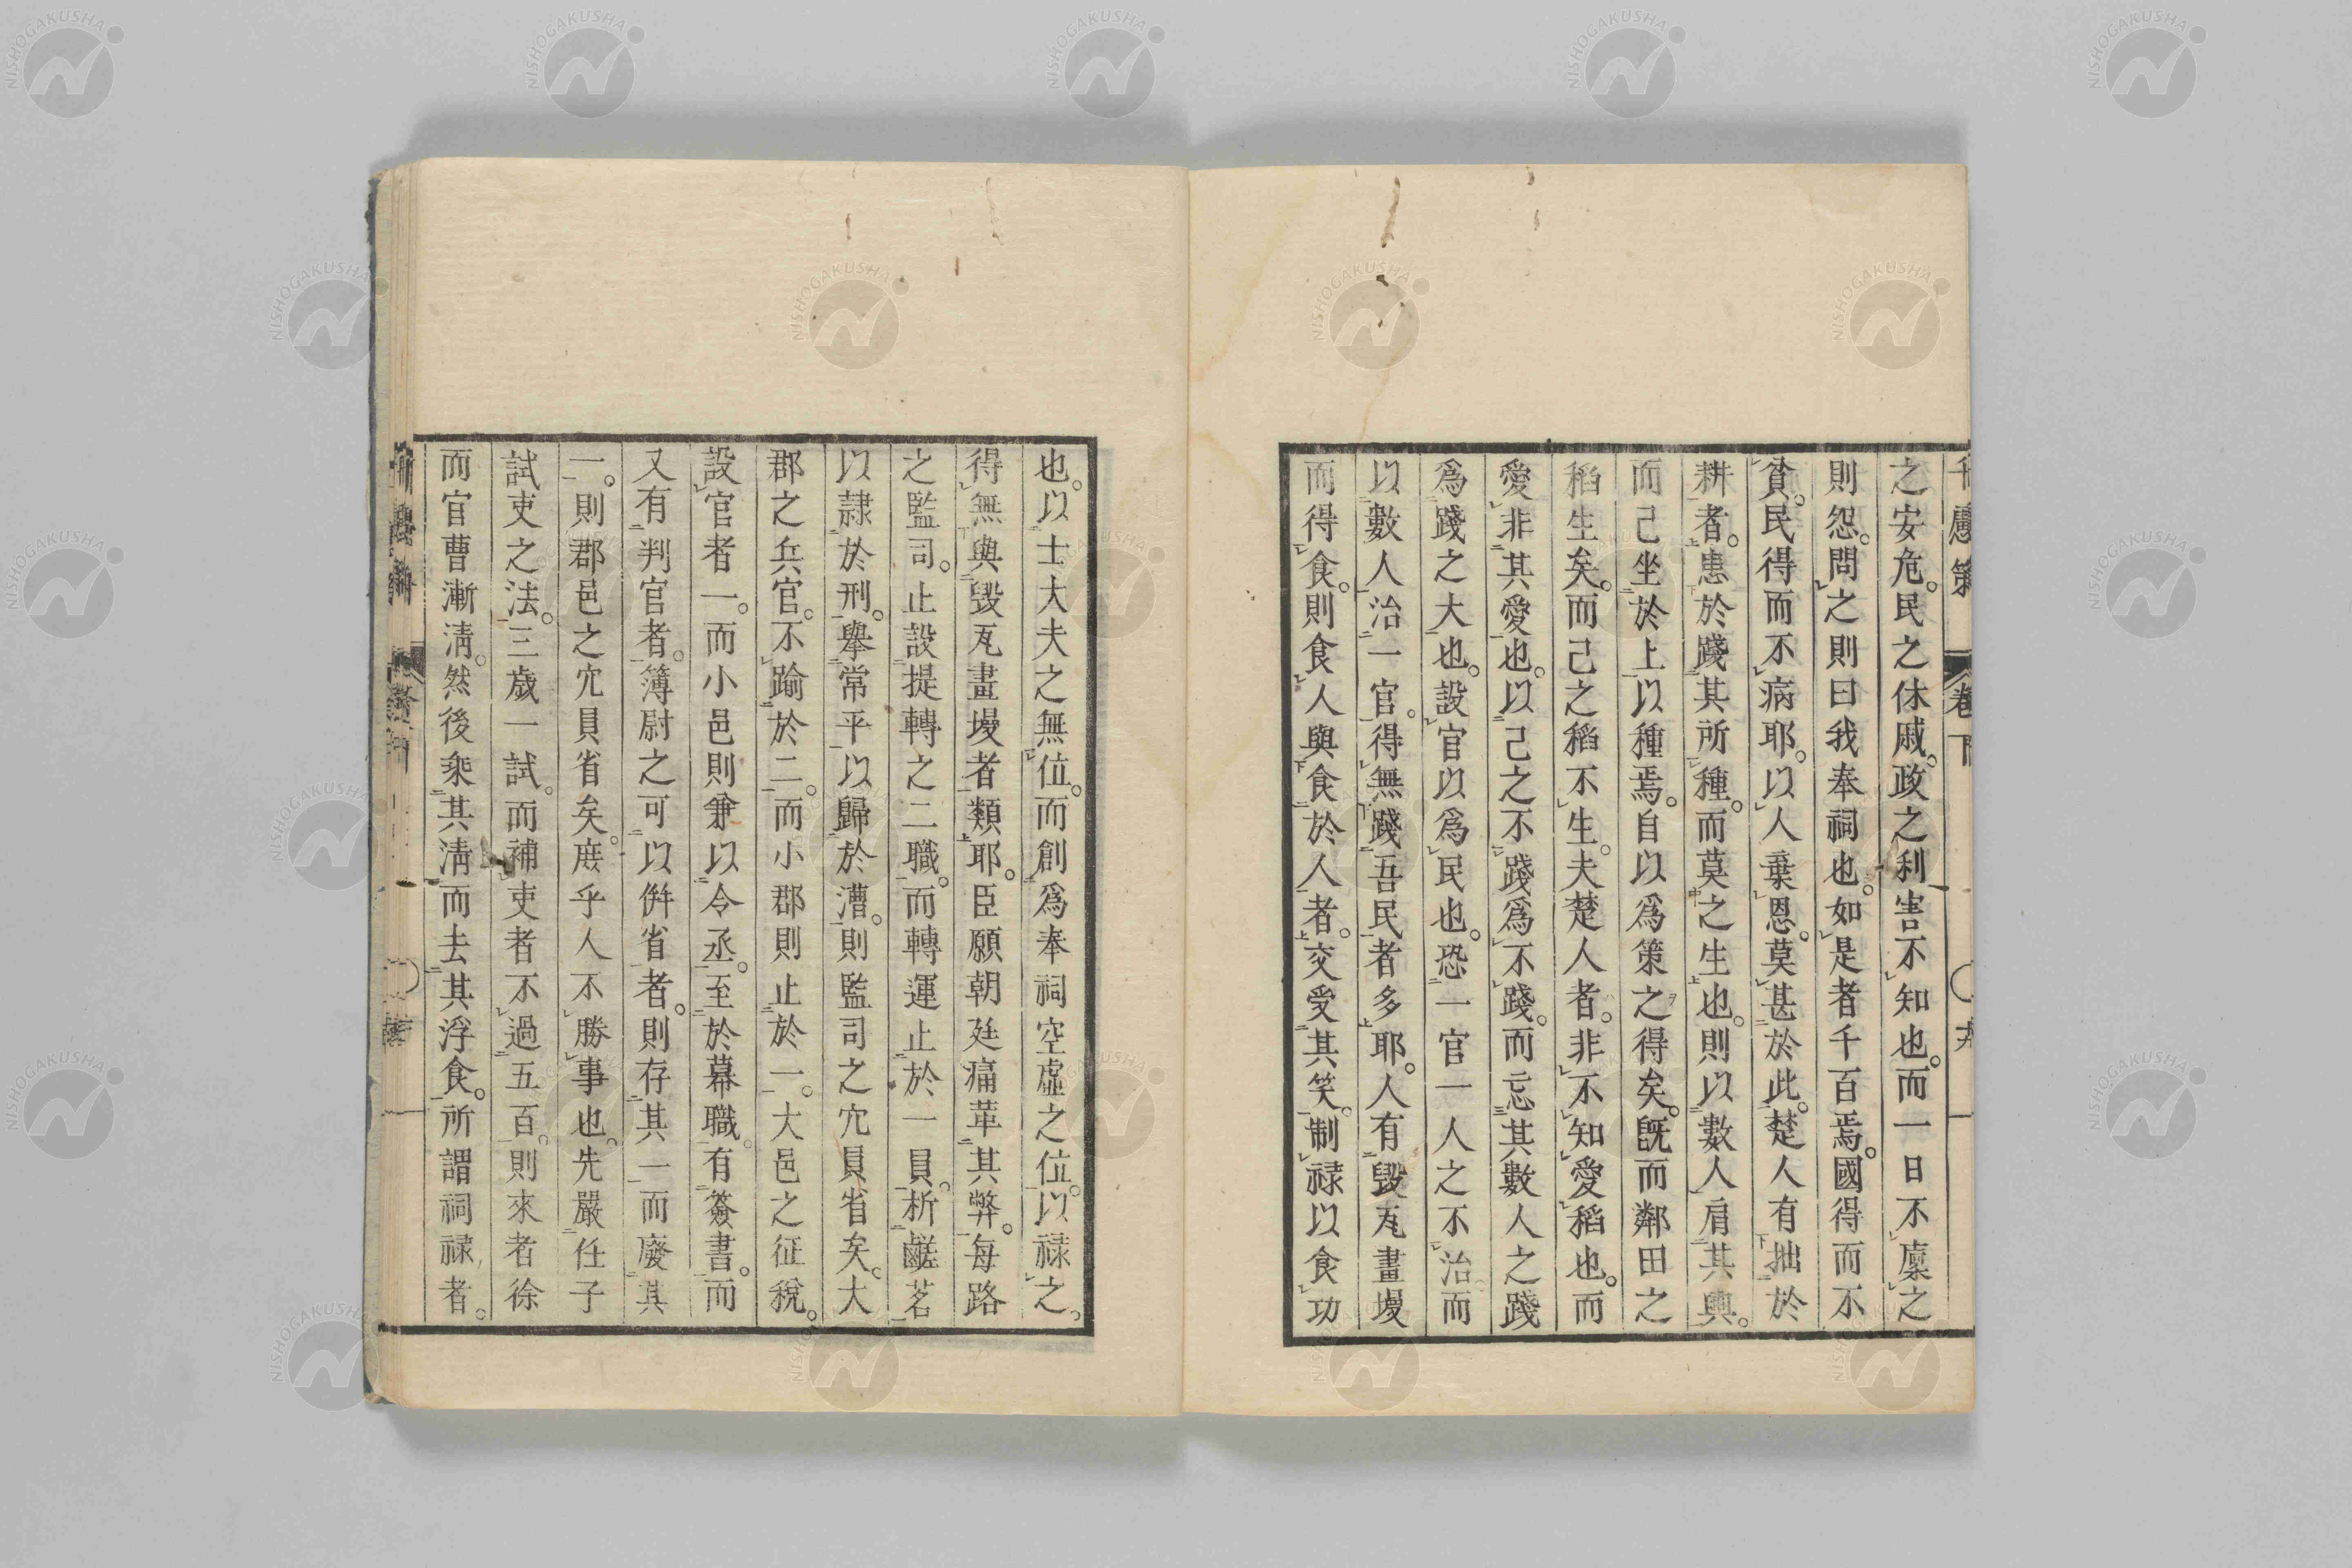 千慮策 卷下
之安危。民之休戚。政之利害不知也。而一日不廩之
則怨。問之則曰我奉祠也。如是者千百焉。國得而不
貧。民得而不病耶。以人棄恩。莫甚於此。楚人有拙於
耕者。患於踐其所種。而莫之生也。則以數人肩其輿。
而己坐於上以種焉。自以為策之得矣。既而鄰田之
稻生矣。而己之稻不生。夫楚人者。非不知愛稻也。而
愛非其愛也。以己之不踐為不踐。而忘其數人之踐
爲踐之大也。設官以爲民也。恐一官一人之不治而
以數人治一官。得無踐吾民者多耶。人有毀瓦畫墁
而得食。則食人與食於人者。交受其笑。制祿以食功
也。以士大夫之無位。而創爲奉祠空虛之位。以祿之。
得無與毀瓦畫墁者類耶。臣願朝廷痛革其弊。每路
之監司。止設提轉之二職。而轉運止於一員。析鹺茗
以隷於刑。舉常平以歸於漕。則監司之冗員省矣。大
郡之兵官。不踰於二。而小郡則止於一。大邑之征稅。
設官者一。而小邑則兼以令丞。至於幕職。有簽書。而
又有判官者。簿尉之可以併省者。則存其一而廢其
一。則郡邑之冗員省矣。庶乎人不勝事也。先嚴任子
試吏之法。三歲一試。而補吏者不過五百。則來者徐
而官曹漸淸。然後乘其淸而去其浮食。所謂祠祿者。
NISHOGAKUSHA